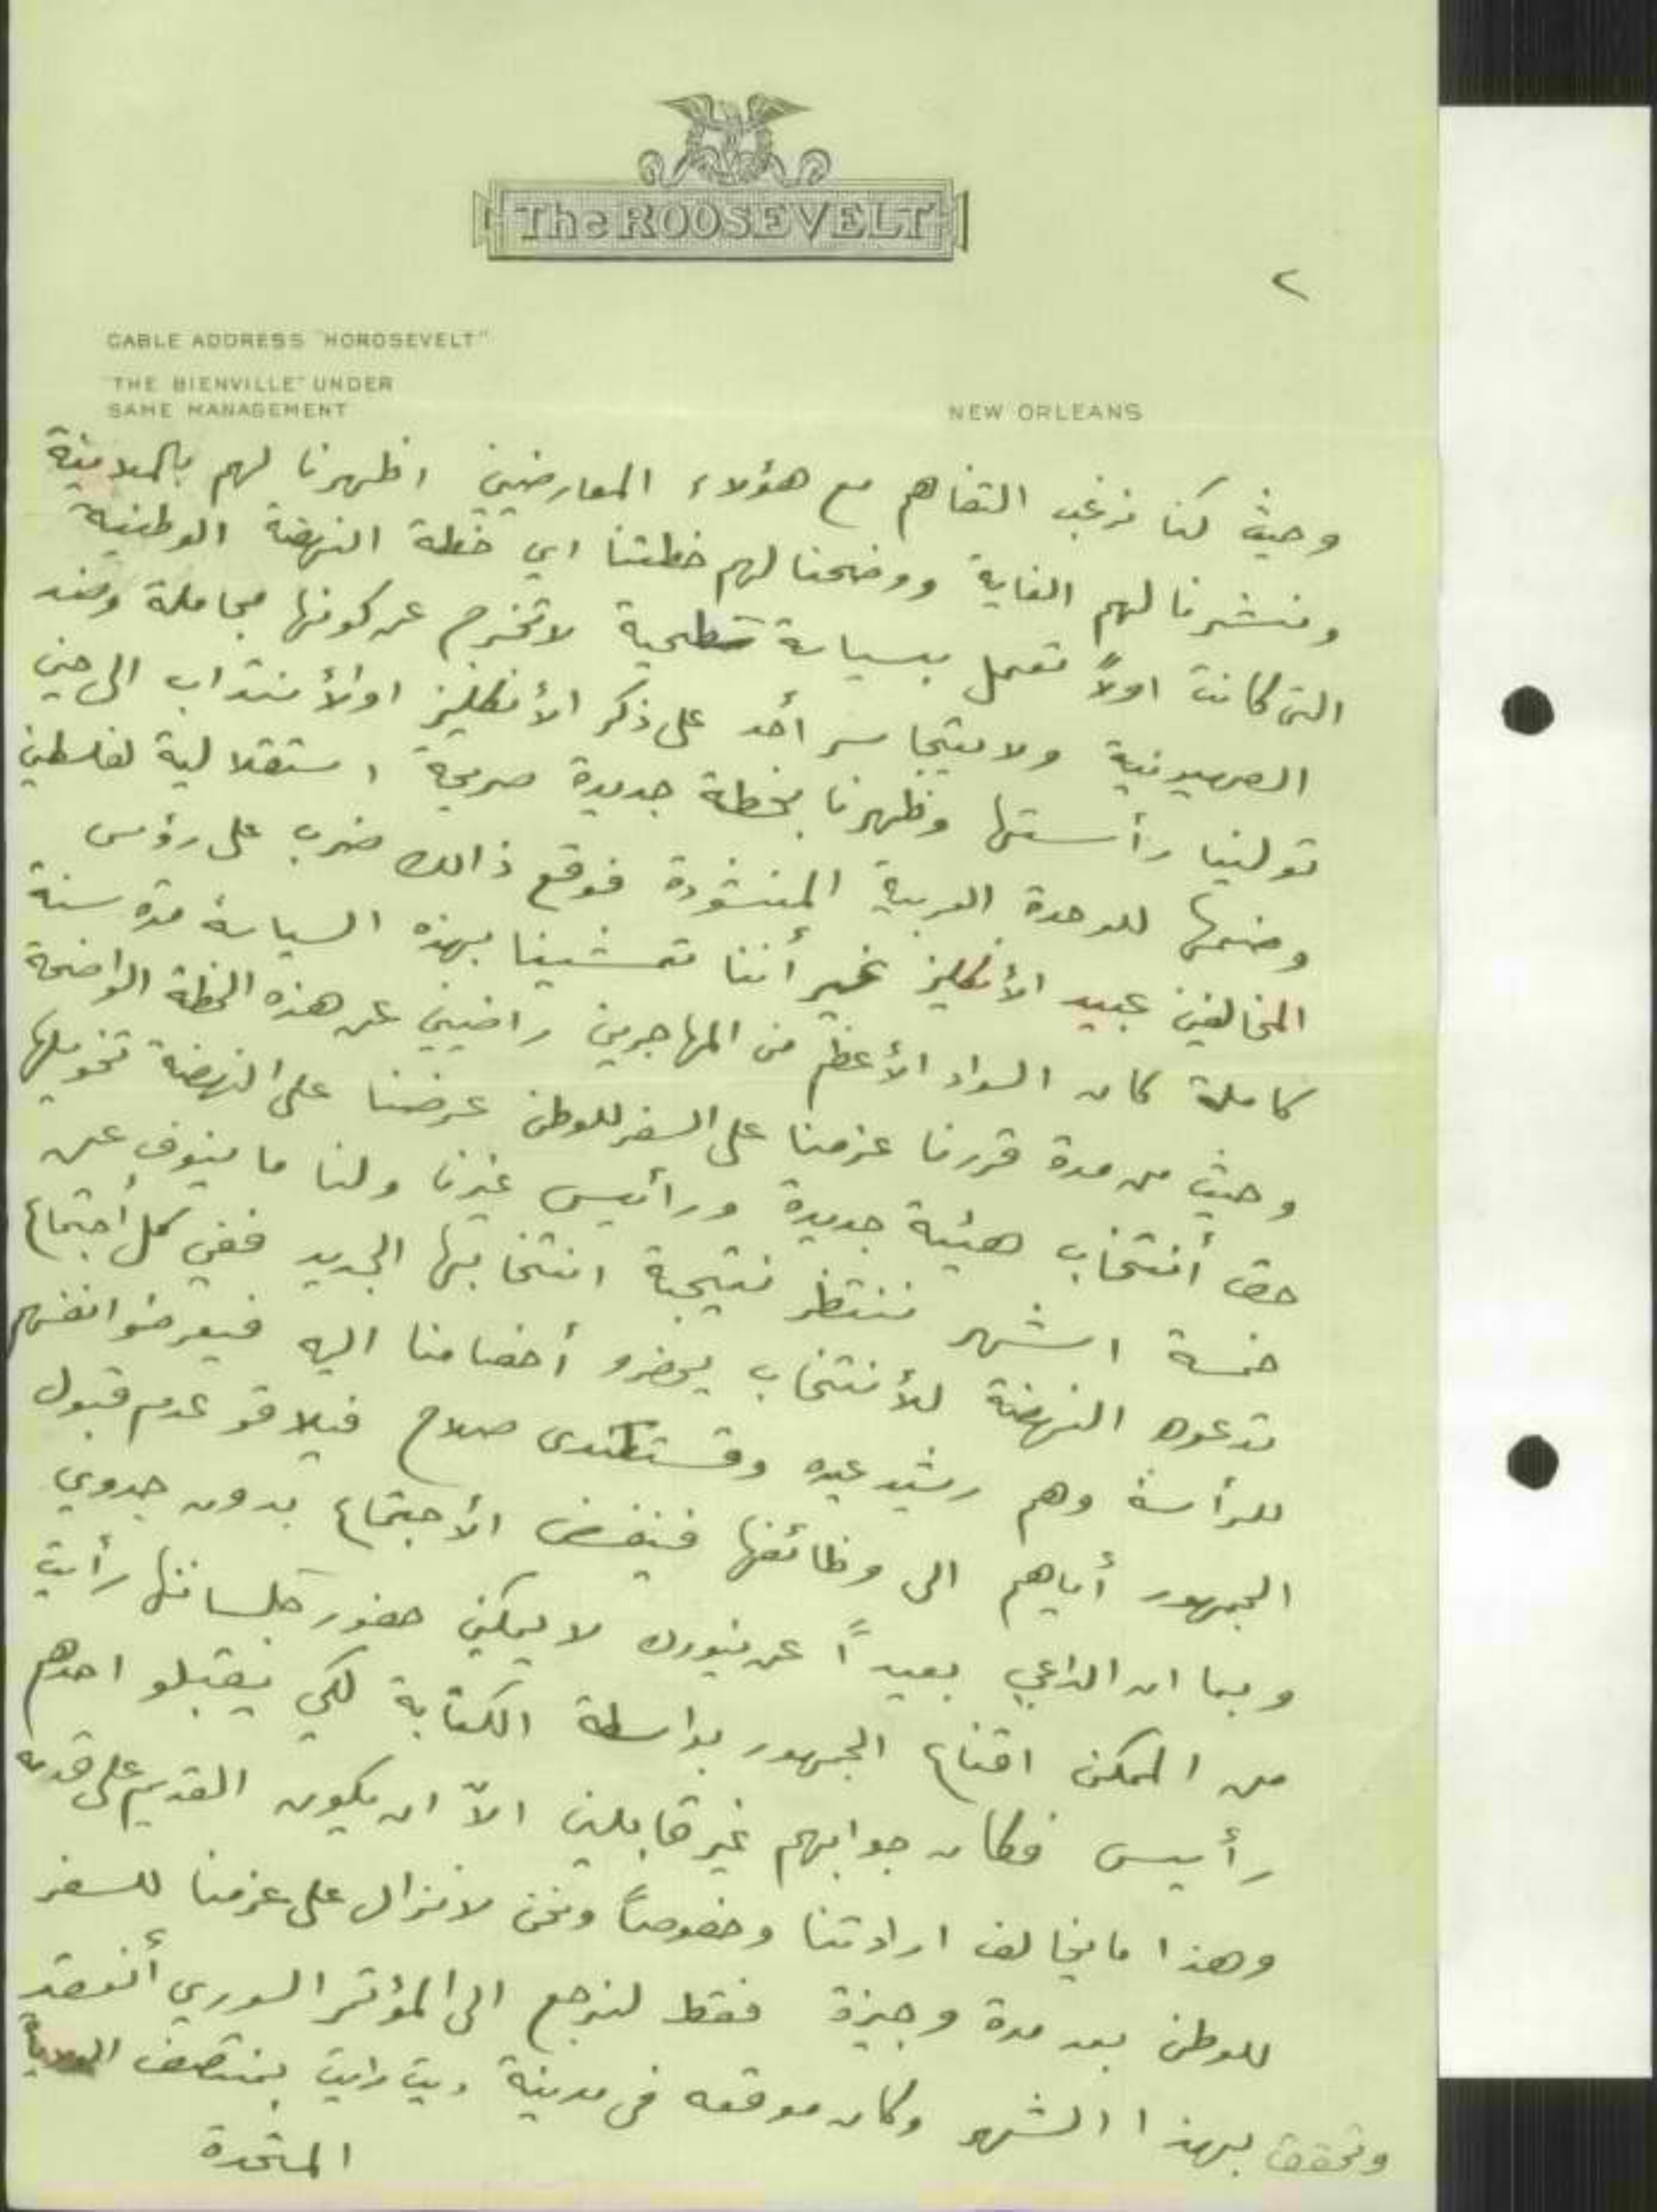 The ROOSEVELT
٢
CABLE ADDRESS "HOROSEVELT"
"THE BIENVILLE" UNDER
SAME MANAGEMENT
NEW ORLEANS
وحيث كنا نرغب التفاهم مع هؤلاء المعارضين اظهرنا لهم بالملاينة
ونشرنا لهم الغاية ووضحنا لهم خطتنا اي خطة النهضة الوطنية
التى كانت اولاً تعمل بسياسة سطحية لا تخرج عن كونها مجاملة وضد
الصهيونية ولا يتجاسر أحد على ذكر الأنكليز او الأنتداب الى حين
تولينا رأستها وظهرنا بخطة جديدة صريحة استقلالية لفلسطين
وضمها للوحدة العربية المنشودة فوقع ذالك ضرب على رؤس
المخالفين عبيد الأنكليز غير أننا تمشينا بهذه السياسة مدة سنة
كاملة كان السواد الأعظم من المهاجرين راضيين عن هذه الخطة الواضحة
وحيث من مدة قررنا عزمنا على السفر للوطن عرضنا على النهضة تخويلها
حق أنتخاب هيئة جديدة ورأيس غيرنا ولنا ما ينوف عن
خمسة اشهر ننتظر نتيجة انتخابها الجديد ففي كل أجتماع
تدعوه النهضة للأنتخاب يحضرو أخصامنا اليه فيعرضوا انفسهم
للرأسة وهم رشيد عبده وقستكندى صلاح فيلاقو عدم قبول
الجمهور أياهم الى وظائفها فينفض الأجتماع بدون جدوي
وبما ان الداعي بعيداً عن نيورك لا يمكني حضور جلساتها رأيت
من الممكن اقناع الجمهور بواسطة الكتابة لكي يقبلو احدهم
رأيس فكان جوابهم غير قابلين الاّ ان يكون القديم على قدمه
وهذا ما يخالف ارادتنا وخصوصاً ونحن لا نزال على عزمنا للسفر
للوطن بعد مدة وجيزة فقط لنرجع الى المؤتمر السوري أنعقد
وتحقق بهذا الشهر وكان موقعه فى مدينة ديترايت بمنتصف الولاية
المتحدة